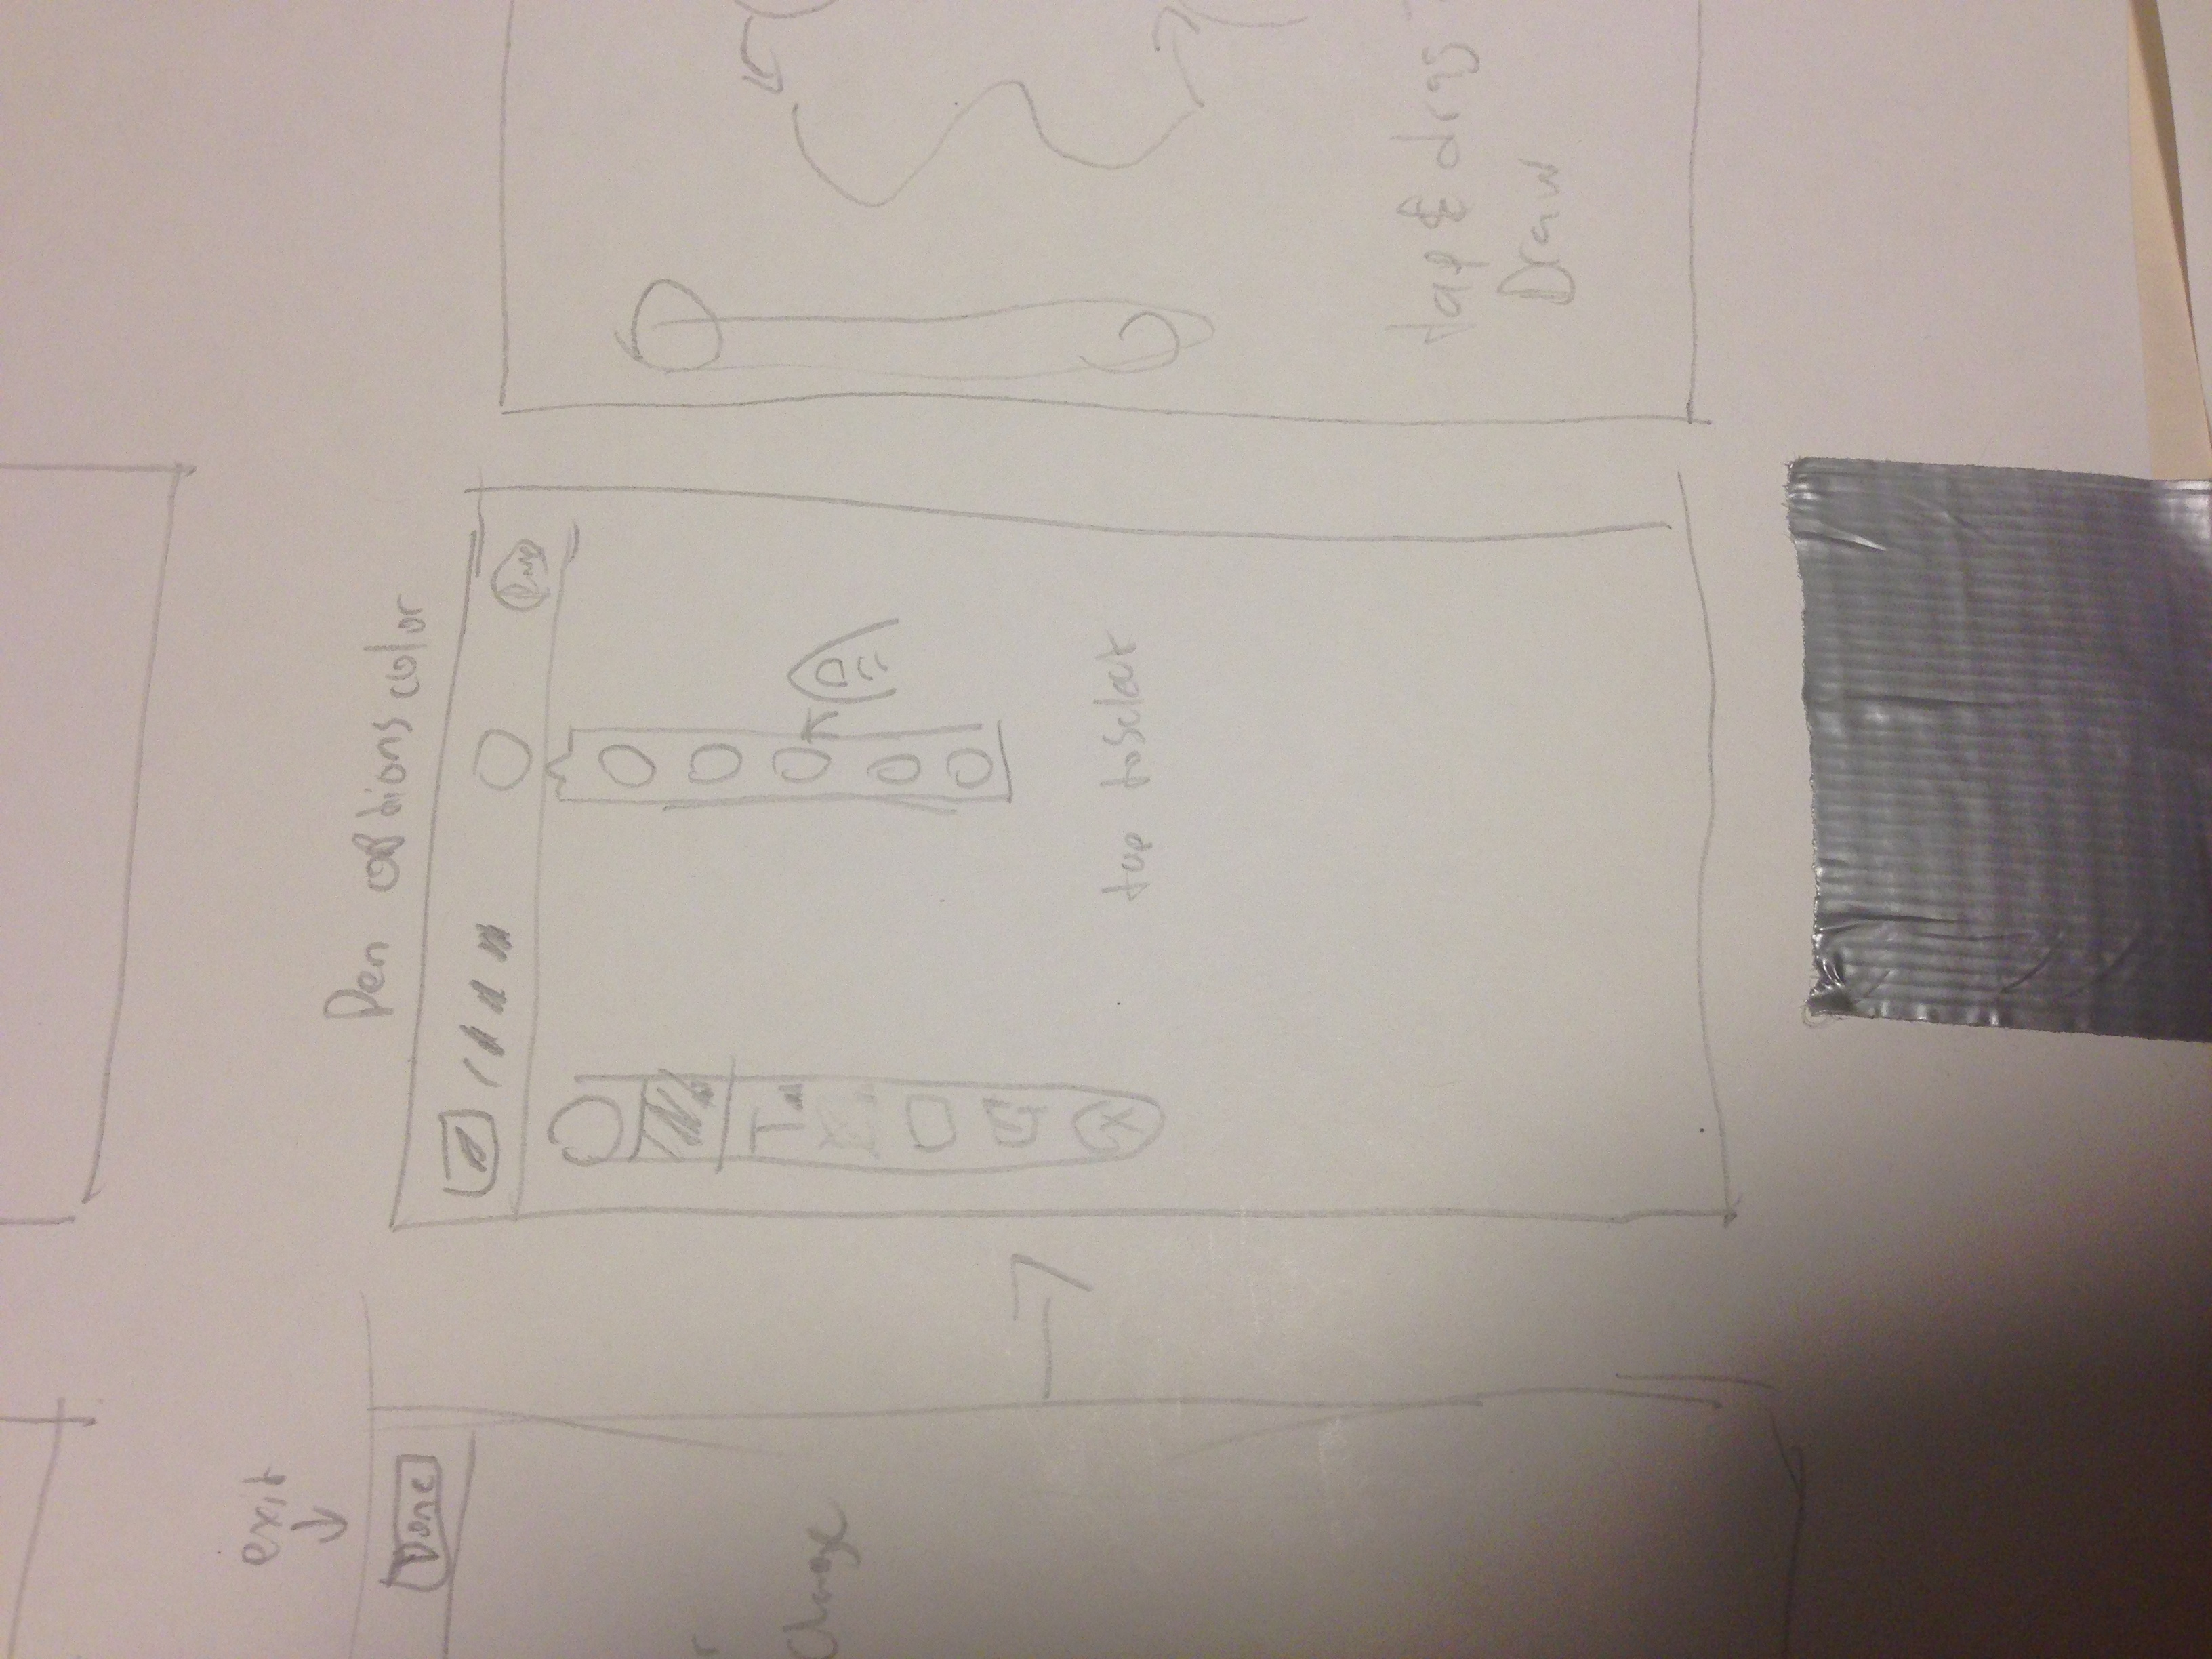 exit
Done
Change
Pen options color
Done
T
X
tap to select
tap & drag
Draw